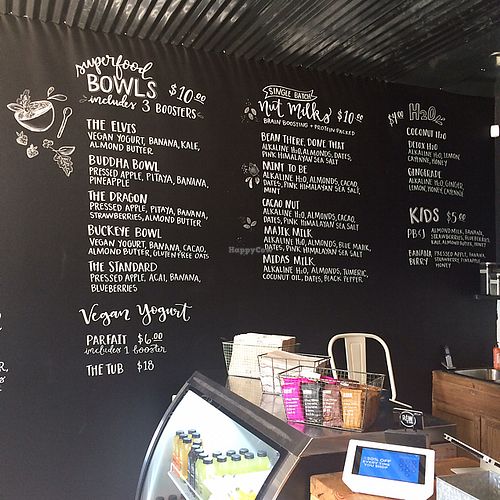 superfood
BOWLS $10.00
includes 3 BOOSTERS
THE ELVIS
VEGAN YOGURT, BANANA, KALE,
ALMOND BUTTER
BUDDHA BOWL
PRESSED APPLE, PITAYA, BANANA,
PINEAPPLE
THE DRAGON
PRESSED APPLE, PITAYA, BANANA,
STRAWBERRIES, ALMOND BUTTER
BUCKEYE BOWL
VEGAN YOGURT, BANANA, CACAO,
ALMOND BUTTER, GLUTEN FREE OATS
THE STANDARD
PRESSED APPLE, ACAI, BANANA,
BLUEBERRIES
Vegan Yogurt
PARFAIT $6.00
includes 1 booster
THE TUB $18
SINGLE BATCH
Nut Milks $10.00
BRAIN BOOSTING + PROTEIN PACKED
BEAN THERE, DONE THAT
ALKALINE H2O, ALMONDS, DATES,
PINK HIMALAYAN SEA SALT
MINT TO BE
ALKALINE H2O, ALMONDS, CACAO,
DATES, PINK HIMALAYAN SEA SALT,
MINT
CACAO NUT
ALKALINE H2O, ALMONDS, CACAO,
DATES, PINK HIMALAYAN SEA SALT
MAJIK MILK
ALKALINE H2O, ALMONDS, BLUE MAJIK,
DATES, PINK HIMALAYAN SEA SALT
MIDAS MILK
ALKALINE H2O, ALMONDS, TUMERIC,
COCONUT OIL, DATES, BLACK PEPPER
H2O
COCONUT H2O
DETOX H2O
ALKALINE H2O, LEMON,
CAYENNE, HONEY
GINGERADE
ALKALINE H2O, GINGER,
LEMON, HONEY, CAYENNE
KIDS $5.00
PB&J ALMOND MILK, BANANA,
STRAWBERRIES, BLUEBERRIES,
KALE, ALMOND BUTTER, HONEY
BANANA BERRY PRESSED APPLE, BANANA,
STRAWBERRY, PINEAPPLE,
HONEY
HappyCow